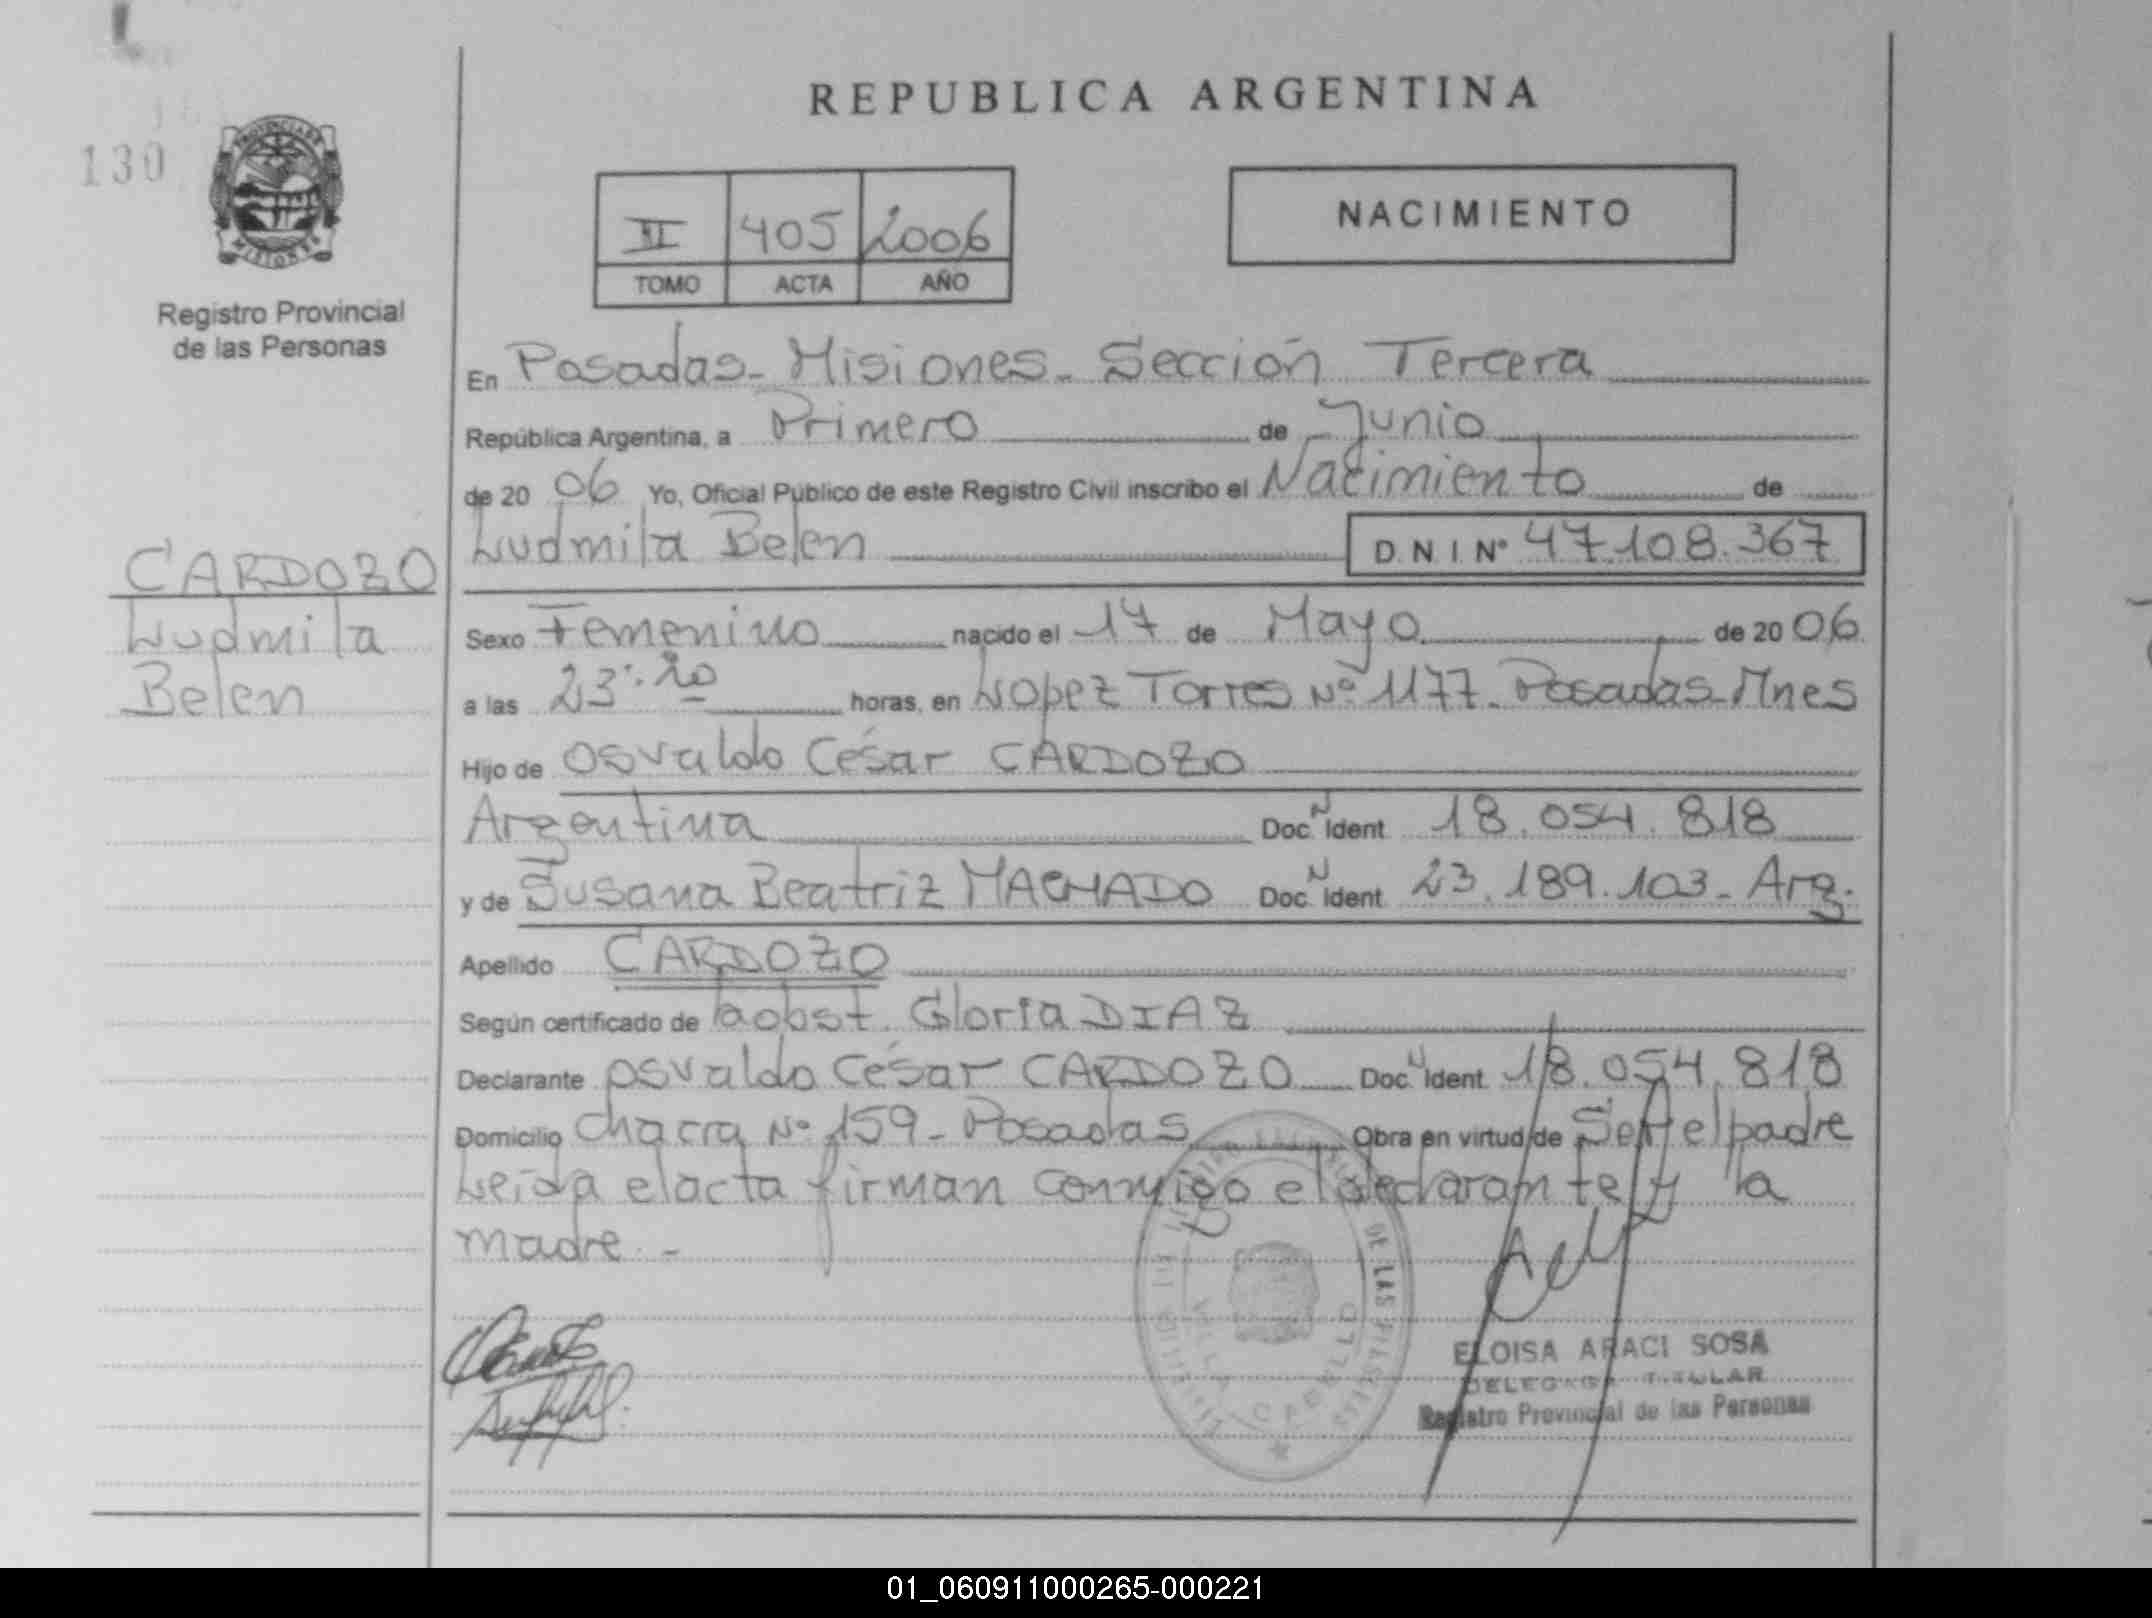 130
PROVINCIA DE
MISIONES
Registro Provincial
de las Personas
REPUBLICA ARGENTINA
II 405 2006
TOMO ACTA AÑO
NACIMIENTO
En Posadas - Misiones - Sección Tercera
República Argentina, a Primero de Junio
de 20 06 Yo, Oficial Público de este Registro Civil inscribo el Nacimiento de
Ludmila Belen D.N.I. Nº 47.108.367
CARDOZO
Ludmila
Belen
Sexo Femenino nacido el 17 de Mayo de 20 06
a las 23:20 horas, en Lopez Torres Nº 1177 - Posadas - Mnes
Hijo de Osvaldo César CARDOZO
Argentina Doc. N Ident 18.054.818
y de Susana Beatriz MACHADO Doc. N Ident. 23.189.103 - Arg.
Apellido CARDOZO
Según certificado de obst. Gloria DIAZ
Declarante Osvaldo César CARDOZO Doc. N Ident. 18.054.818
Domicilio Chacra Nº 159 - Posadas Obra en virtud de Ser el padre
Leida el acta firman conmigo el declarante y la
madre. -
DE LAS PERSONAS
VILLA CABELLO
ELOISA ARACI SOSA
DELEGADA TITULAR
Registro Provincial de las Personas
01_060911000265-000221